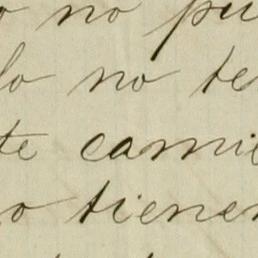 o no pu
lo no te
te camie
o tiener